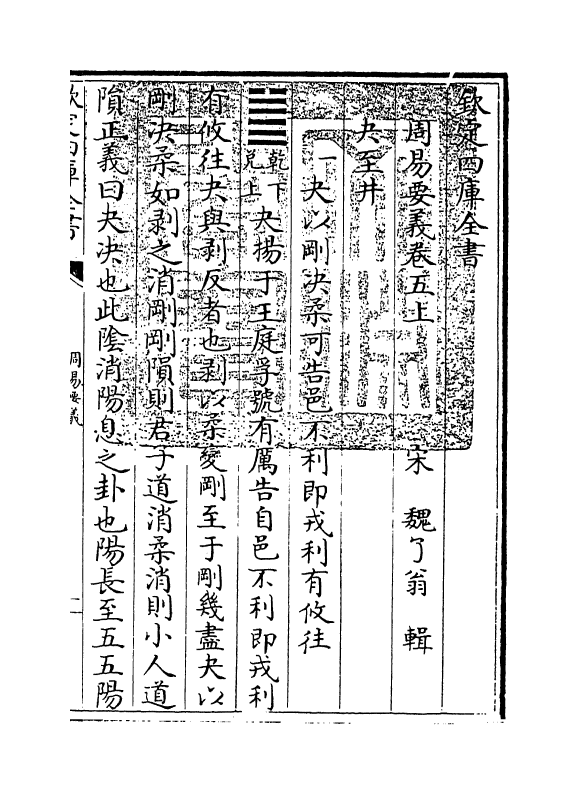 欽定四庫全書
周易要義卷五上
宋 魏了翁 輯
夬至井
一夬以剛决柔可告邑不利即戎利有攸往
乾下兌上 夬揚于王庭孚號有厲告自邑不利即戎利
有攸往夬與剥反者也剥以柔變剛至于剛幾盡夬以
剛决柔如剥之消剛剛隕則君子道消柔消則小人道
隕正義曰夬决也此陰消陽息之卦也陽長至五五陽
欽定四庫全書
周易要義